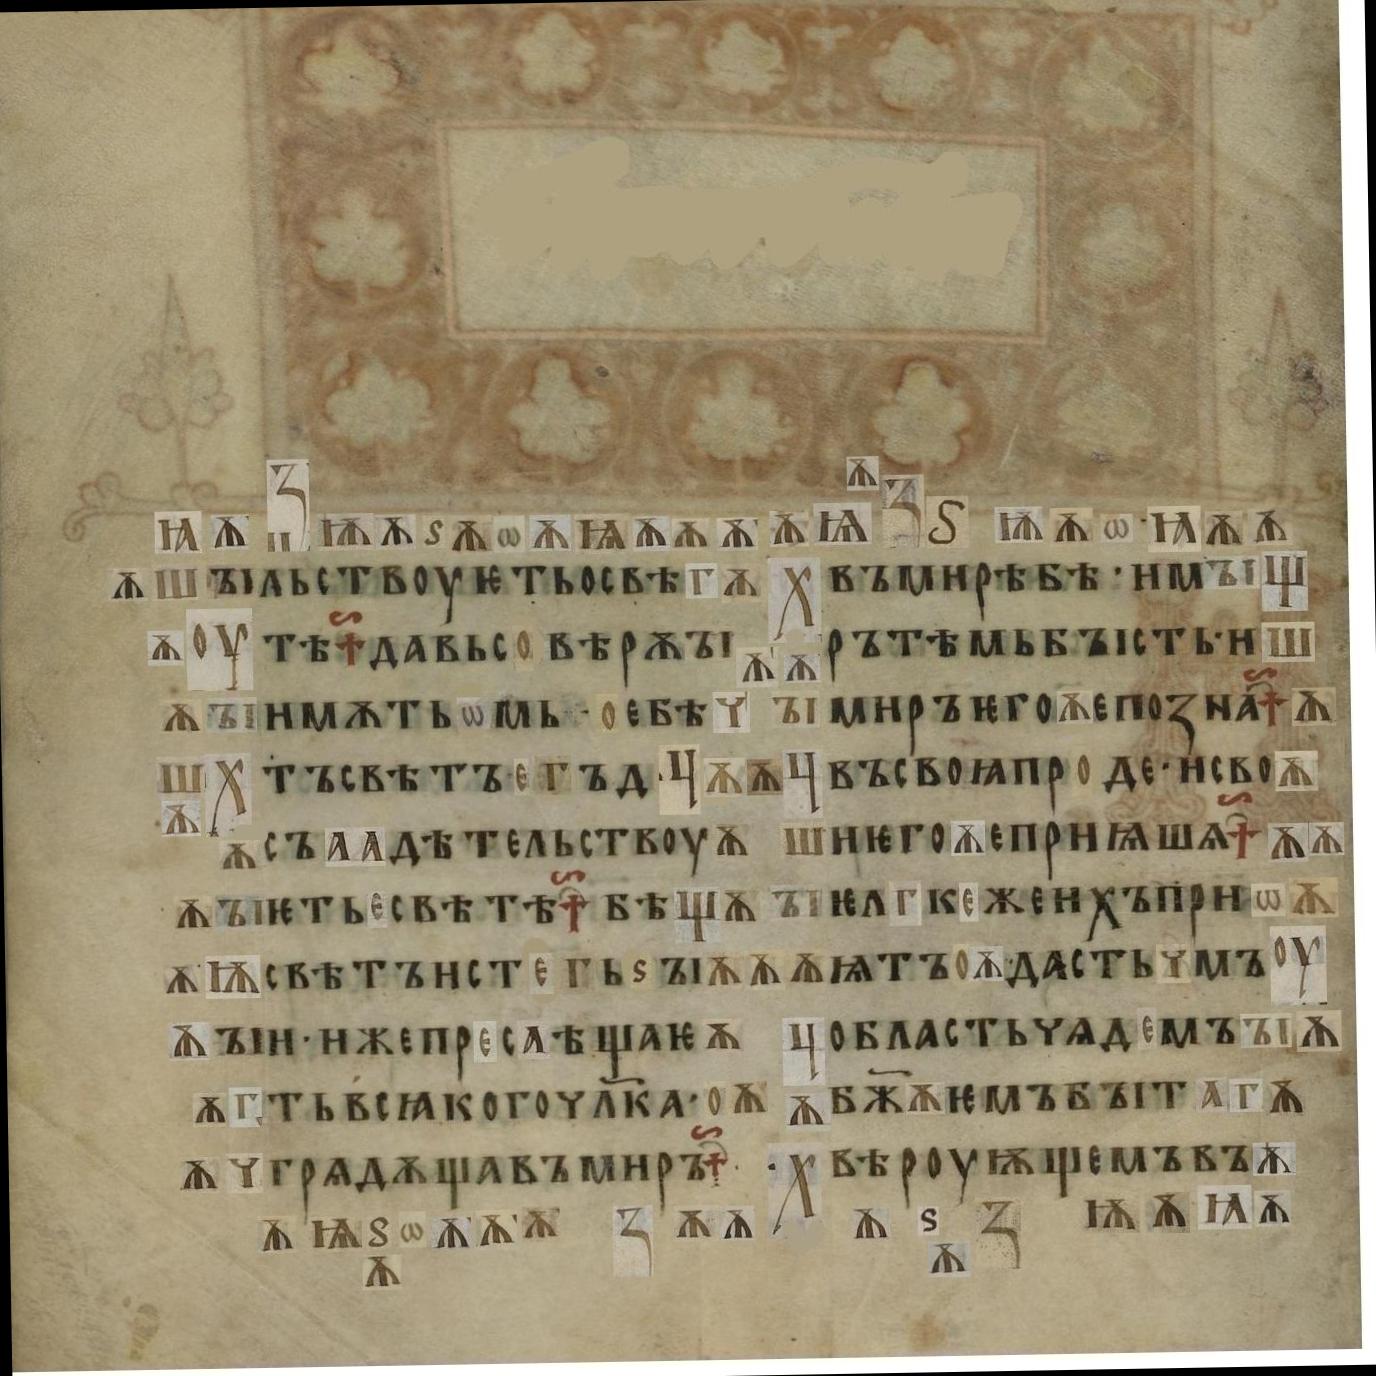 ꙗ ѫ ꙁ п ѭ ѫ ѕ ѫ ѡ ѫ ѩ ѫ ѫ ѫ ѫ ѩ ѫ ꙁ ѕ ѭ ѫ ѡ · ꙗ ѫ ѫ
ѫ ш ъільствоуѥтьосвѣ г ѫ х въмирѣбѣ · имъі щ
ѫ оу тѣ давьс о вѣрѫъі ѫ ѫ рътѣмьбъість · и ш
ѫ ъі имѫть ѡ мь · о ебѣ ч ъі миръѥго ѫ епозна ѫ
ш х тъсвѣтъ е г ъд · ц ѫ ѫ ц въсвоꙗпр о де · исво ѫ
ѫ ѫ съ л а дѣтельствоу ѫ ш иѥго ѫ еприꙗшѧ ѫ ѫ
ѫ ъі ѥть е свѣтѣ бѣ щ ѫ ъі ѥл г к е женхъпри ѡ ѫ
ѫ ѭ свѣтъист е г ь ѕ ъі ѫ ѫ ѫ ѩтъ о ѫ · дасть ч мъ оу
ѫ ъі и · ижепр е с л ѣщаѥ ѫ ц областьчѧд е мъ ъі ѫ
ѫ г тьвсꙗкогочл҃ка · о ѫ ѫ бж҃ ѫ ѥмъбъіт л г ѫ
ѫ ч грѧдѫщавъмиръ · · х вѣроуѭщемъвъ ѫ
ѫ ѩ ѕ ѡ ѫ ѫ ѫ ꙁ ѫ ѫ ѫ ѕ ꙁ ѭ ѫ ꙗ ѫ
ѫ ѫ